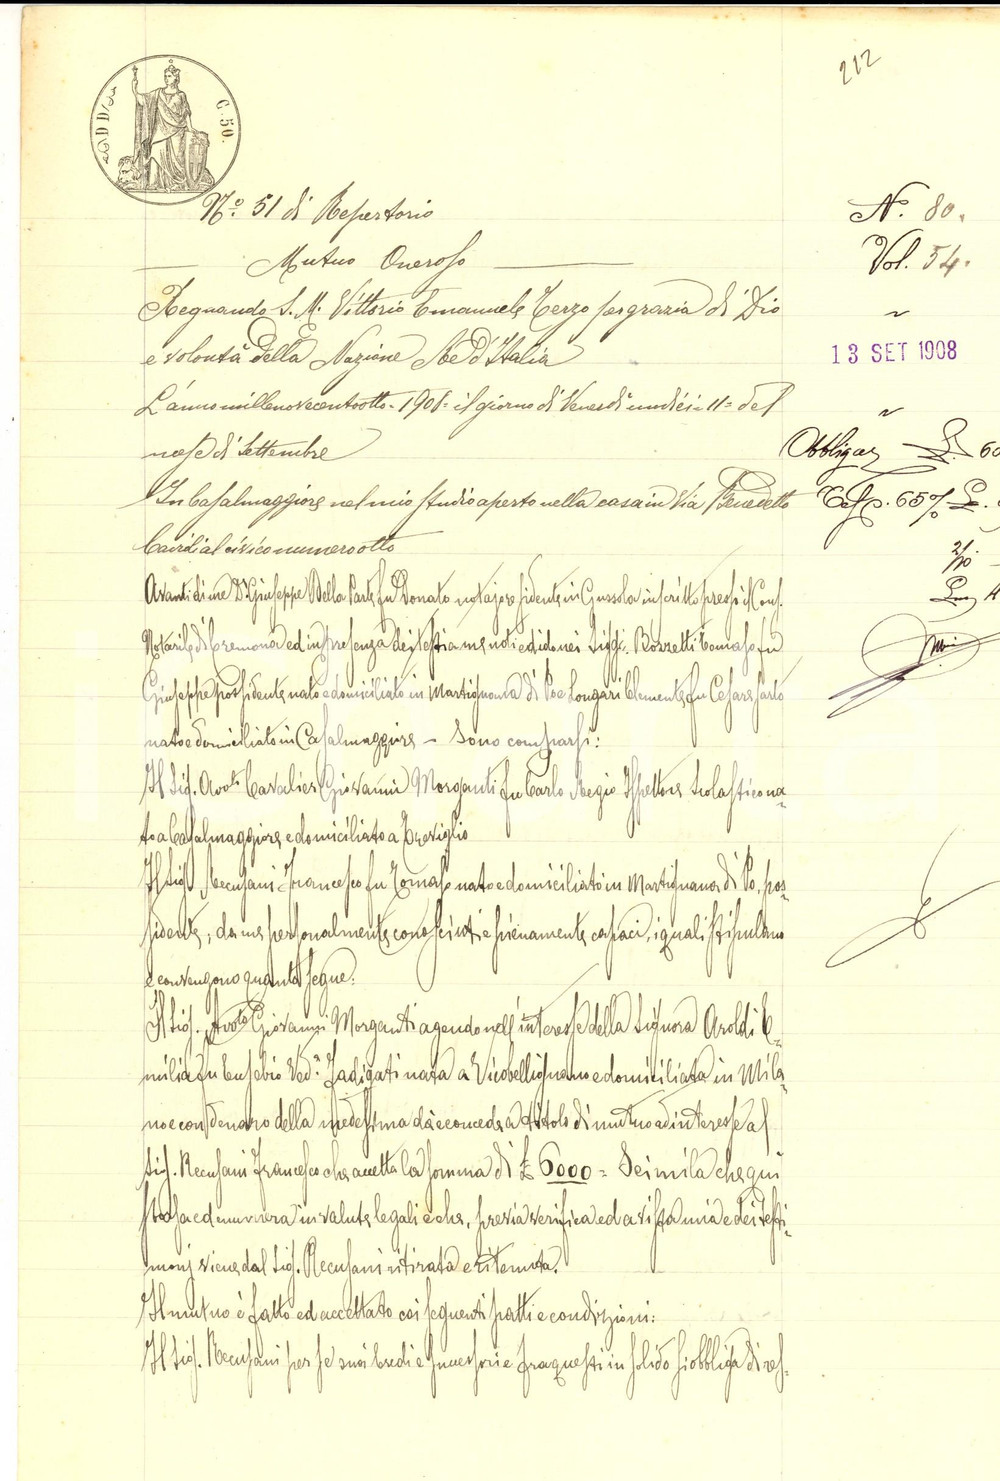 212
C. 50.
N.º 51 di Repertorio
N. 80.
Mutuo Oneroso
Vol. 54.
Regnando S. M. Vittorio Emanuele Terzo per grazia di Dio
e volontà della Nazione Re d'Italia
13 SET 1908
L'anno millenovecentootto - 1908 - il giorno di Venerdì undici 11 = del
mese di Settembre
In Casalmaggiore nel mio studio aperto nella casa in Via Benedetto
Cairoli al civico numero otto
Avanti di me Dr. Giuseppe Della Parte fu Donato notajo residente in Gussola inscritto presso il Cons.
Notarile di Cremona ed in presenza dei testi a me noti ed idonei Sigg. Bozzetti Tomaso fu
Giuseppe possidente nato e domiciliato in Martignana di Po e Longari Clemente fu Cesare sarto
nato e domiciliato in Casalmaggiore — Sono comparsi:
Il Sig. Avv.to Cavalier Giovanni Morganti fu Carlo Regio Ispettore Scolastico na-
to a Casalmaggiore e domiciliato a Treviglio
Il Sig. Recusani Francesco fu Tomaso nato e domiciliato in Martignana di Po, pos-
sidente, da me personalmente conosciuti e pienamente capaci, i quali stipulano
e convengono quanto segue:
Il Sig. Avv.to Giovanni Morganti agendo nell'interesse della Signora Aroldi E-
milia fu Eusebio Ved.a Fadigati nata a Vicobellignano e domiciliata in Mila-
no e con denaro della medesima dà e concede a titolo di mutuo ad interesse al
Sig. Recusani Francesco che accetta la somma di £ 6000 = Seimila che qui
stessa ed enumera in valute legali e che, previa verifica ed a vista mia e dei testi-
monj viene dal Sig. Recusani ritirata e ritenuta.
Il mutuo è fatto ed accettato coi seguenti patti e condizioni:
Il Sig. Recusani per sé suoi Eredi e Successori e fra questi in solido si obbliga di res-